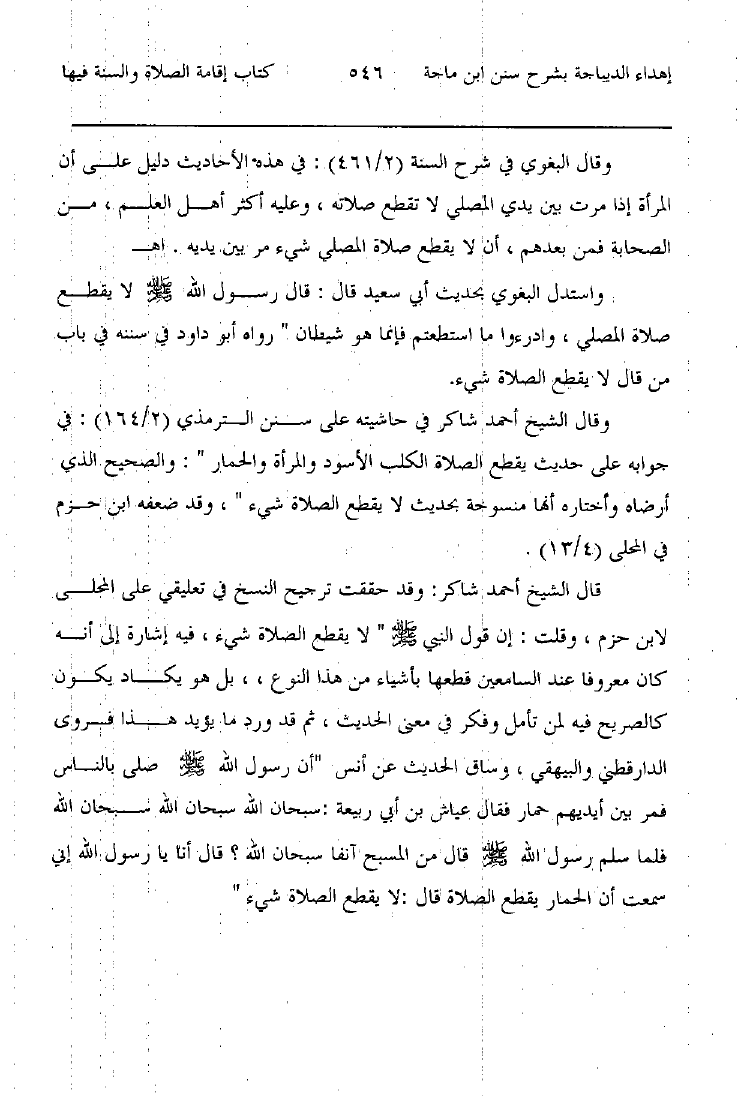 إهداء الديباجة بشرح سنن ابن ماجة ٥٤٦ كتاب إقامة الصلاة والسنة فيها
وقال البغوي في شرح السنة (٤٦١/٢) : في هذه الأحاديث دليل علــى أن
المرأة إذا مرت بين يدي المصلي لا تقطع صلاته ، وعليه أكثر أهــل العلــم ، مــن
الصحابة فمن بعدهم ، أن لا يقطع صلاة المصلي شيء مر بين يديه . اهــ
واستدل البغوي بحديث أبي سعيد قال : قال رســول الله ﷺ لا يقطــع
صلاة المصلي ، وادرءوا ما استطعتم فإنما هو شيطان " رواه أبو داود في سننه في باب
من قال لا يقطع الصلاة شيء.
وقال الشيخ أحمد شاكر في حاشيته على ســنن الــترمذي (١٦٤/٢) : في
جوابه على حديث يقطع الصلاة الكلب الأسود والمرأة والحمار " : والصحيح الذي
أرضاه وأختاره أنها منسوخة بحديث لا يقطع الصلاة شيء " ، وقد ضعفه ابن حــزم
في المحلى (١٣/٤) .
قال الشيخ أحمد شاكر: وقد حققت ترجيح النسخ في تعليقي على المحلــى
لابن حزم ، وقلت : إن قول النبي ﷺ " لا يقطع الصلاة شيء ، فيه إشارة إلى أنــه
كان معروفا عند السامعين قطعها بأشياء من هذا النوع ، ، بل هو يكــاد يكــون
كالصريح فيه لمن تأمل وفكر في معنى الحديث ، ثم قد ورد ما يؤيد هــذا فــروى
الدارقطني والبيهقي ، وساق الحديث عن أنس "أن رسول الله ﷺ صلى بالنــاس
فمر بين أيديهم حمار فقال عياش بن أبي ربيعة :سبحان الله سبحان الله ســبحان الله
فلما سلم رسول الله ﷺ قال من المسبح آنفا سبحان الله ؟ قال أنا يا رسول الله إني
سمعت أن الحمار يقطع الصلاة قال :لا يقطع الصلاة شيء "